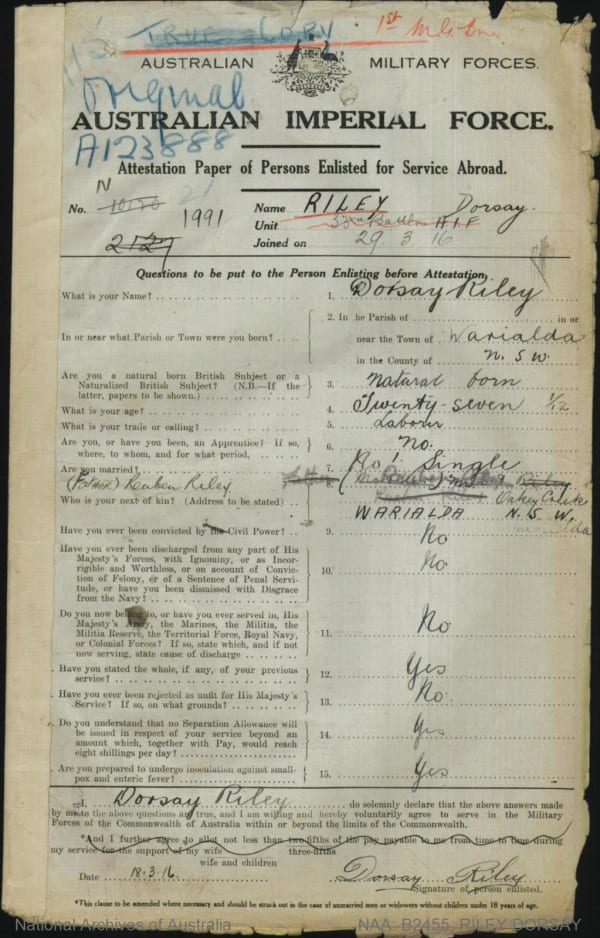 TRUE COPY 1st
AUSTRALIAN MILITARY FORCES.
Original
AUSTRALIAN IMPERIAL FORCE.
A123888
Attestation Paper of Persons Enlisted for Service Abroad.
N 21
No. 1991 Name RILEY Dorsay.
Unit 33rd Battln A.I.F
2127 Joined on 29 3 16
Questions to be put to the Person Enlisting before Attestation.
What is your Name? 1. Dorsay Riley
2. In the Parish of in or
In or near what Parish or Town were you born? near the Town of Warialda
in the County of N.S.W.
Are you a natural born British Subject or a
Naturalized British Subject? (N.B.—If the 3. Natural born
latter, papers to be shown.)
What is your age? 4. Twenty-seven 1/12
What is your trade or calling? 5. Labourer
Are you, or have you been, an Apprentice? If so, 6. No.
where, to whom, and for what period,
Are you married? 7. No! Single
(Father) Reuben Riley 8. Riley
Who is your next of kin? (Address to be stated) Oakey Creek
WARIALDA N.S.W.
Have you ever been convicted by the Civil Power? 9. No
Have you ever been discharged from any part of His
Majesty's Forces, with Ignominy, or as Incor-
rigible and Worthless, or on account of Convic- 10. No
tion of Felony, or of a Sentence of Penal Servi-
tude, or have you been Dismissed with Disgrace
from the Navy?
Do you now belong to, or have you ever served in, His
Majesty's Army, the Marines, the Militia, the
Militia Reserve, the Territorial Force, Royal Navy, 11. No
or Colonial Forces? If so, state which, and if not
now serving, state cause of discharge
Have you stated the whole, if any, of your previous 12. Yes
service?
Have you ever been rejected as unfit for His Majesty's 13. No
Service? If so, on what grounds?
Do you understand that no Separation Allowance will
be issued in respect of your service beyond an 14. Yes
amount which, together with Pay, would reach
eight shillings per day?
Are you prepared to undergo inoculation against small- 15. Yes
pox and enteric fever?
I, Dorsay Riley do solemnly declare that the above answers made
by me to the above questions are true, and I am willing and hereby voluntarily agree to serve in the Military
Forces of the Commonwealth of Australia within or beyond the limits of the Commonwealth.
*And I further agree to allot not less than two-fifths of the pay payable to me from time to time during
my service for the support of my wife three-fifths
wife and children
Date 18.3.16. Dorsay Riley
Signature of person enlisted.
*This clause to be amended where necessary and should be struck out in the case of unmarried men or widowers without children under 18 years of age.
National Archives of Australia NAA: B2455, RILEY DORSAY